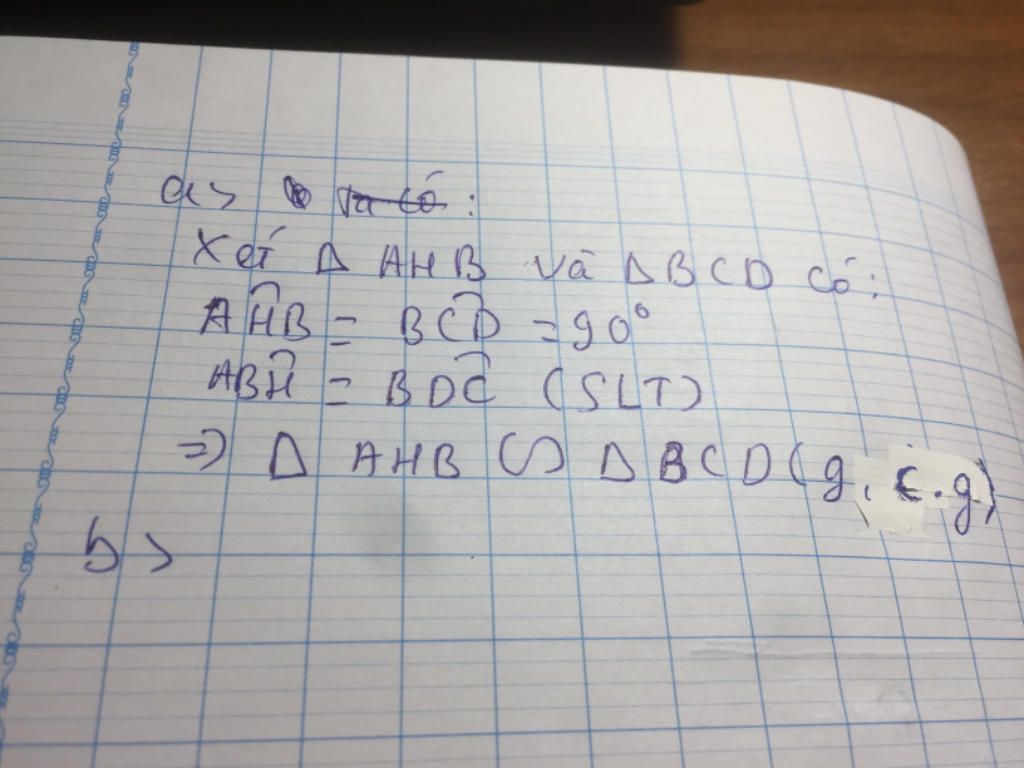 a> và có:
Xét Δ AHB và Δ BCD có:
AHB = BCD = 90°
ABH = BDC (SLT)
=> Δ AHB ∽ Δ BCD (g.c.g)
b>